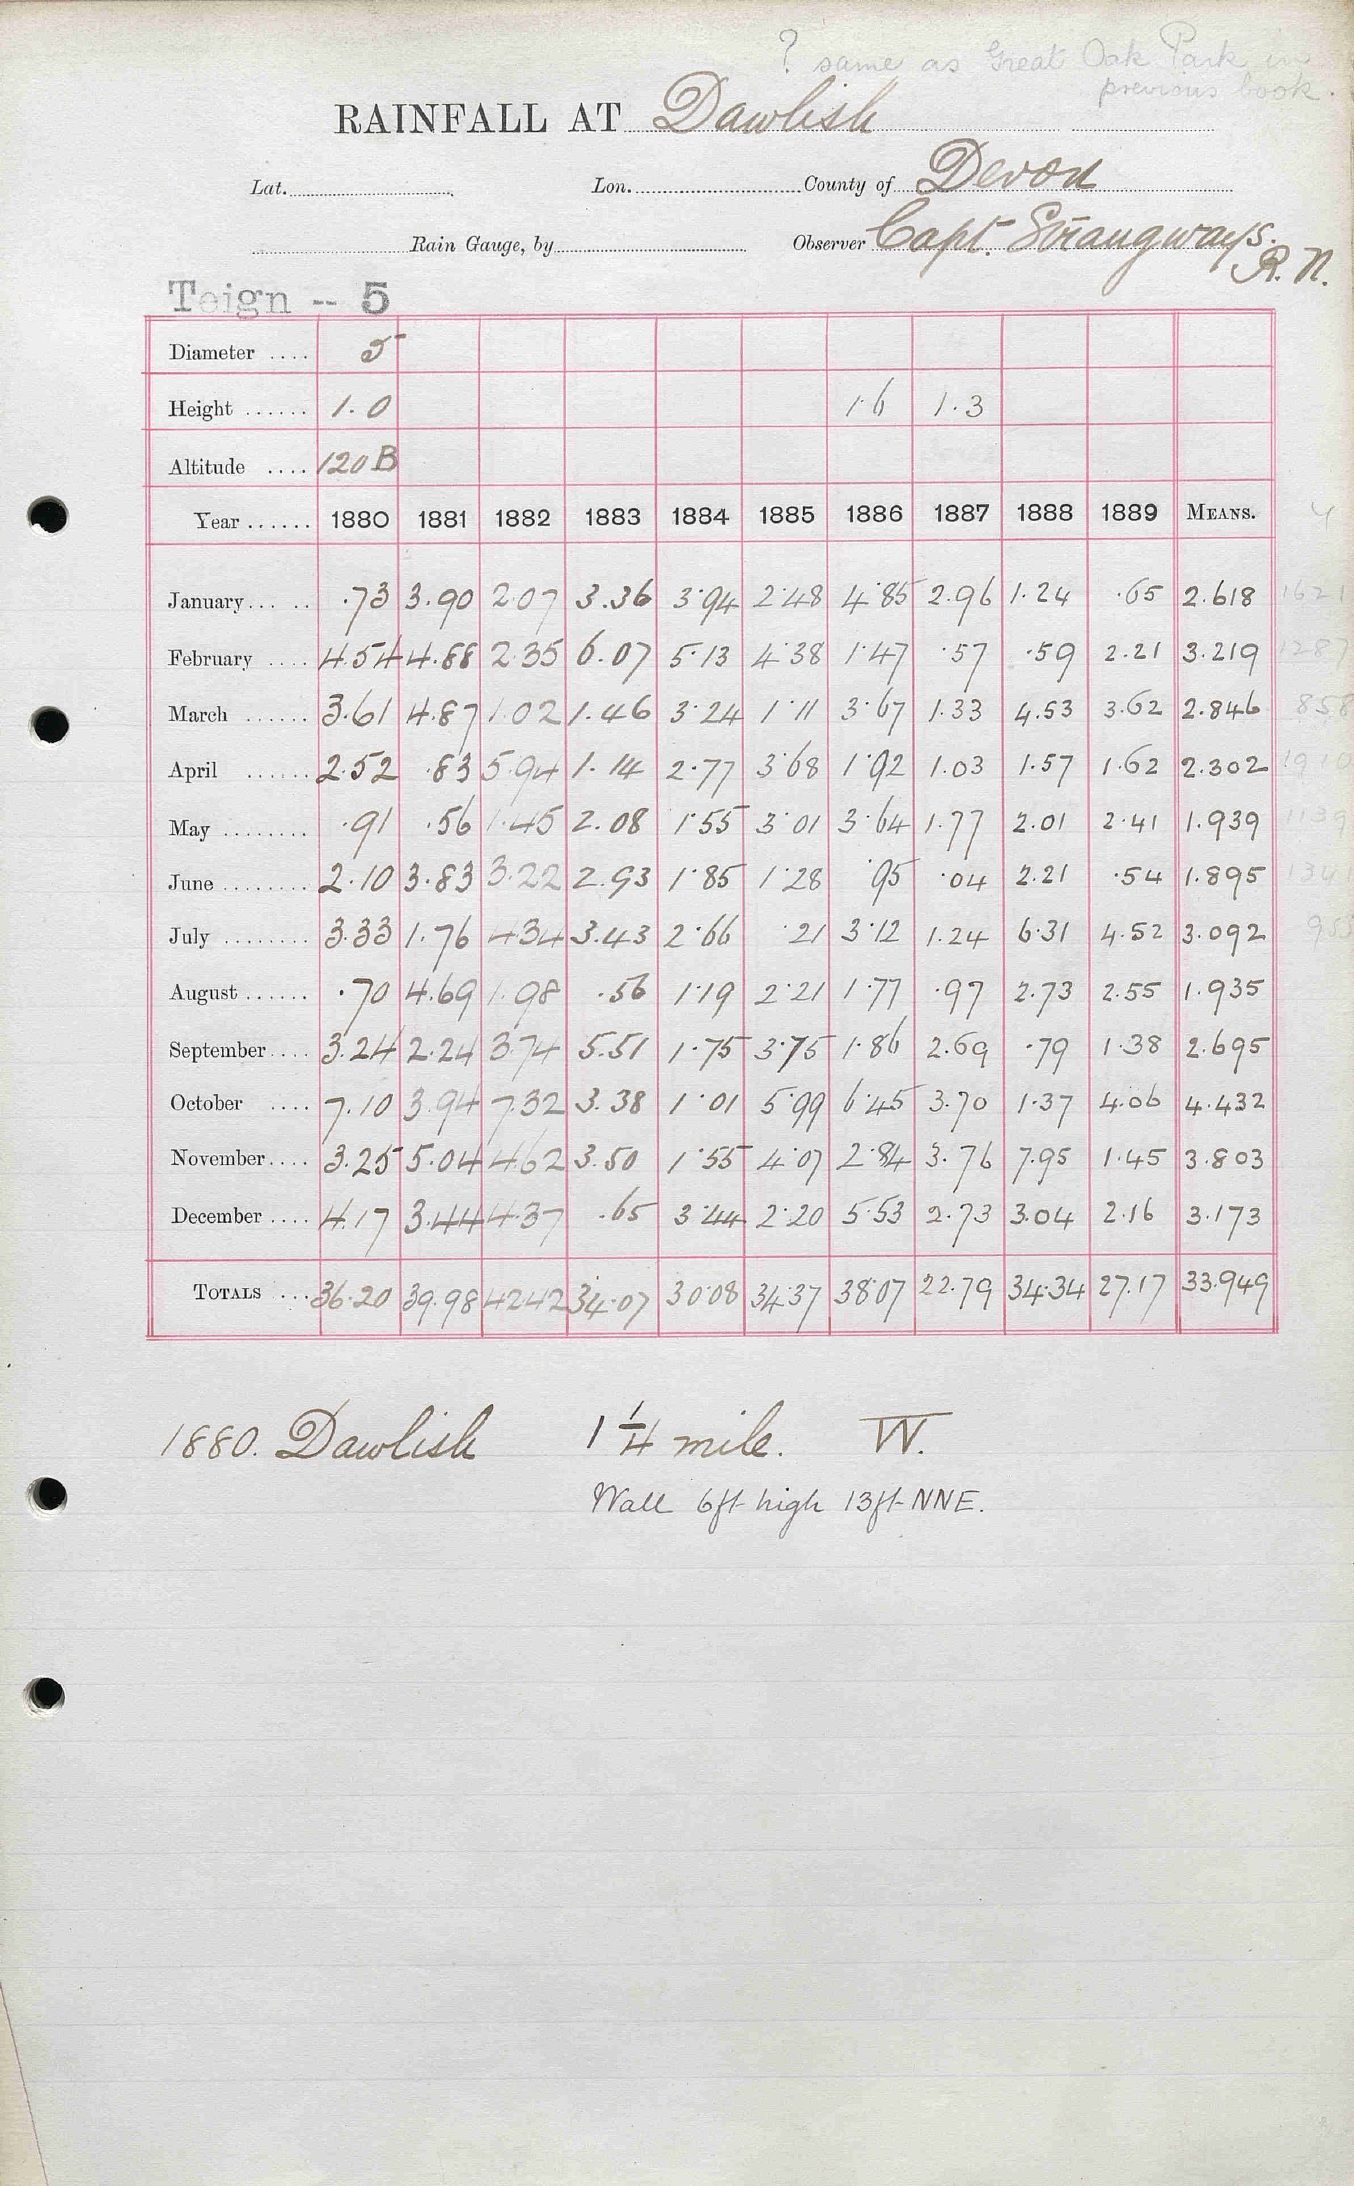 ? same as Great Oak Park in
previous book.
RAINFALL AT Dawlish
Lat. Lon. County of Devon
Rain Gauge, by Observer Capt. Strangways.
R.N.
Teign -- 5
Diameter .... 5
Height ...... 1.0 1.6 1.3
Altitude .... 120 B
Year ...... 1880 1881 1882 1883 1884 1885 1886 1887 1888 1889 MEANS.
January ..... .73 3.90 2.07 3.36 3.94 2.48 4.85 2.96 1.24 .65 2.618 1621
February .... 4.54 4.88 2.35 6.07 5.13 4.38 1.47 .57 .59 2.21 3.219 1287
March ...... 3.61 4.87 1.02 1.46 3.24 1.11 3.67 1.33 4.53 3.62 2.846 858
April ...... 2.52 .83 5.94 1.14 2.77 3.68 1.92 1.03 1.57 1.62 2.302 1910
May ........ .91 .56 1.45 2.08 1.55 3.01 3.64 1.77 2.01 2.41 1.939 1139
June ........ 2.10 3.83 3.22 2.93 1.85 1.28 .95 .04 2.21 .54 1.895
July ........ 3.33 1.76 4.34 3.43 2.66 .21 3.12 1.24 6.31 4.52 3.092
August ...... .70 4.69 1.98 .56 1.19 2.21 1.77 .97 2.73 2.55 1.935
September .... 3.24 2.24 3.74 5.51 1.75 3.75 1.86 2.69 .79 1.38 2.695
October .... 7.10 3.94 7.32 3.38 1.01 5.99 6.45 3.70 1.37 4.06 4.432
November .... 3.25 5.04 4.62 3.50 1.55 4.07 2.84 3.76 7.95 1.45 3.803
December .... 4.17 3.44 4.37 .65 3.44 2.20 5.53 2.73 3.04 2.16 3.173
TOTALS ... 36.20 39.98 42.42 34.07 30.08 34.37 38.07 22.79 34.34 27.17 33.949
1880. Dawlish 1 1/4 mile. W.
Wall 6ft high 13ft NNE.